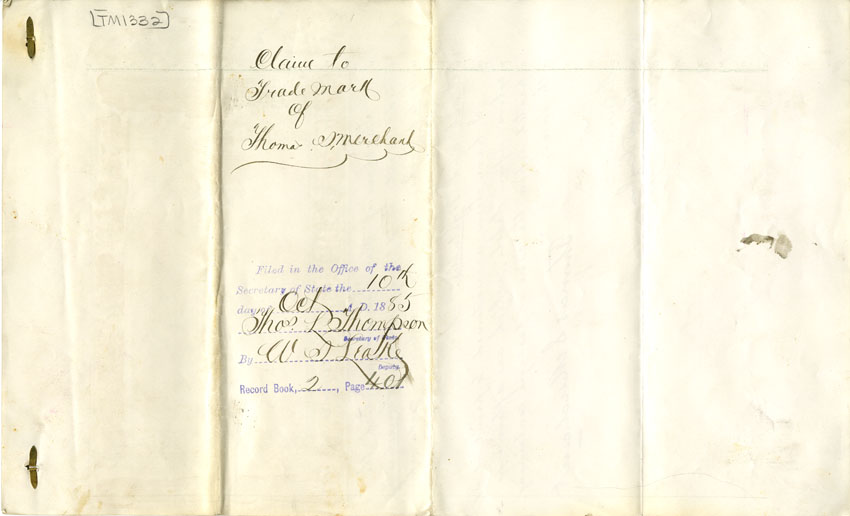 [TM1332]
Claim to
Trade Mark
of
Thomas S. Merchant
Filed in the Office of the
Secretary of State the 10th
day of Oct A. D. 1885
Thos L Thompson
Secretary of State
By W
Deputy
Record Book, 2, Page 401